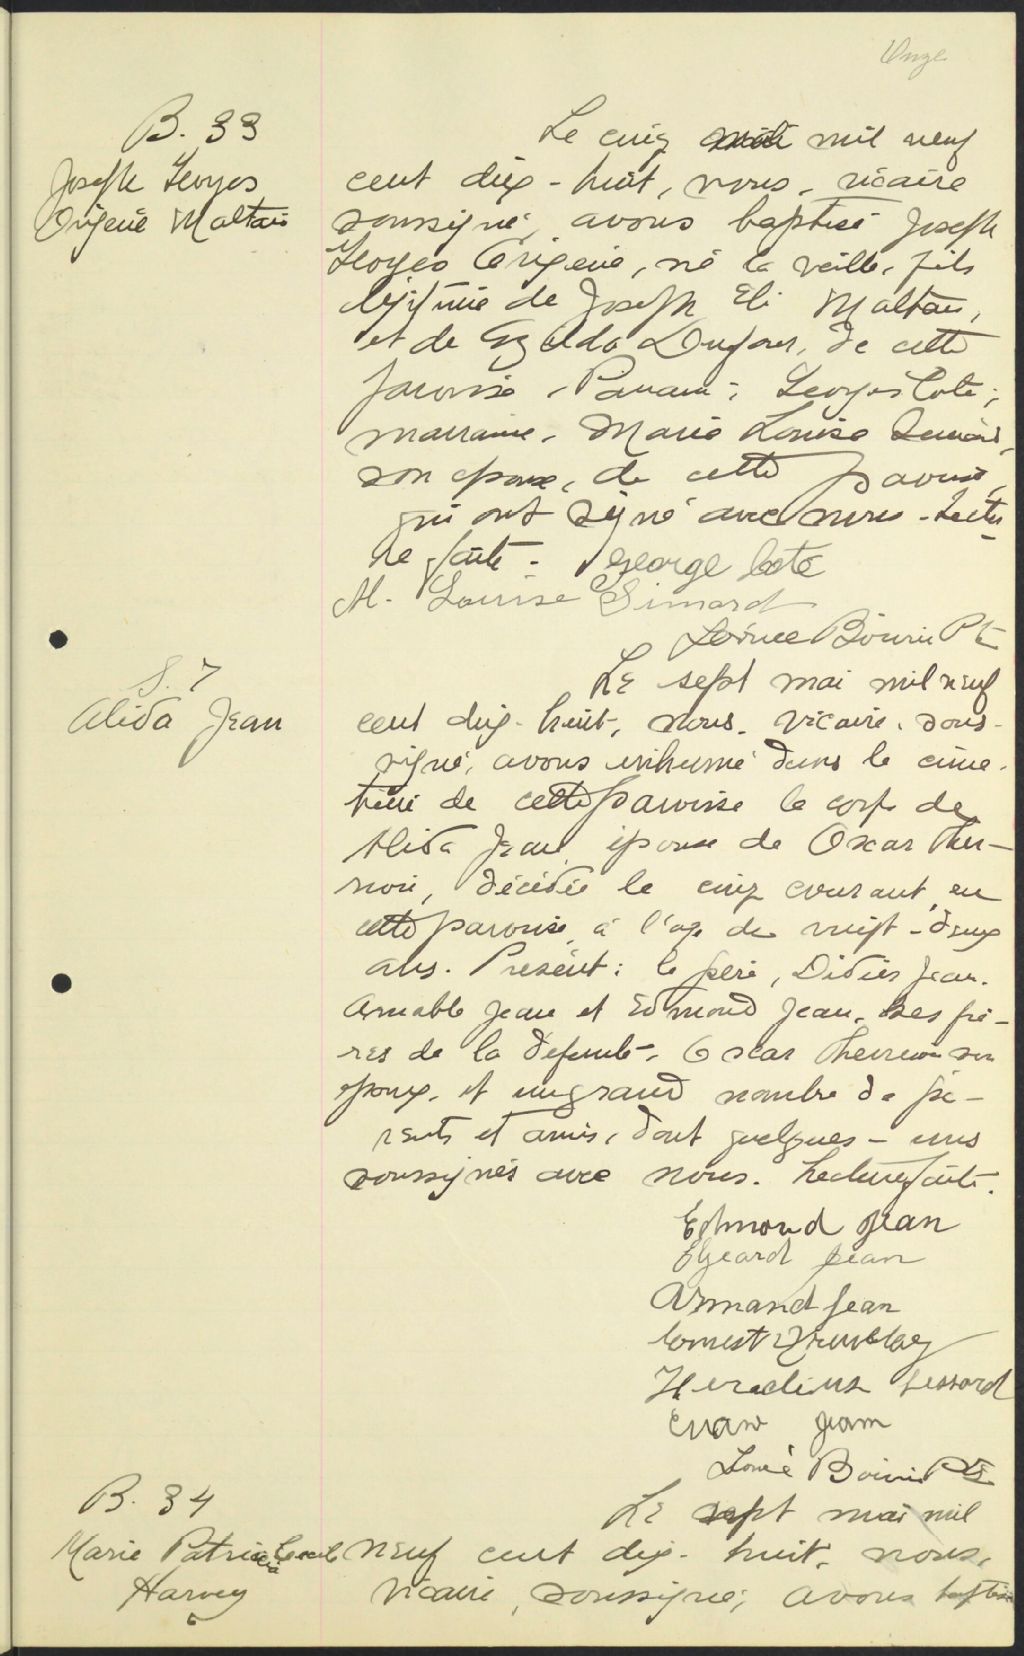 Onze
B. 33
Joseph Georges
Origène Maltais
Le cinq mai mil neuf
cent dix-huit, nous, vicaire
soussigné, avons baptisé Joseph
Georges Origène, né la veille, fils
légitime de Joseph Eli Maltais,
et de Dufour, de cette
paroisse. Parrain: Georges Coté;
marraine, Marie Louise Simard,
son épouse, de cette paroisse,
qui ont signé avec nous. Lectu-
re faite. George Coté
M. Louise Simard
Boivin Ptre
S. 7
Alida Jean
Le sept mai mil neuf
cent dix-huit, nous, vicaire, sous-
signé, avons inhumé dans le cime-
tière de cette paroisse le corps de
Alida Jean, épouse de Oscar Ther-
rien, décédée le cinq courant, en
cette paroisse, à l'age de vingt-deux
ans. Présent: le père, Didier Jean.
Amable Jean et Edmond Jean, des frè-
res de la defunte, Oscar Therrien son
époux, et un grand nombre de pa-
rents et amis, dont quelques-uns
soussignés avec nous. Lecture faite.
Edmond Jean
Jean
Armand Jean
Ernest Tremblay
Heraclius Lessard
Jean
Boivin Ptre
B. 34
Marie Patricia Cecile
Harvey
Le sept mai mil
neuf cent dix-huit, nous,
vicaire, soussigné, avons baptisé